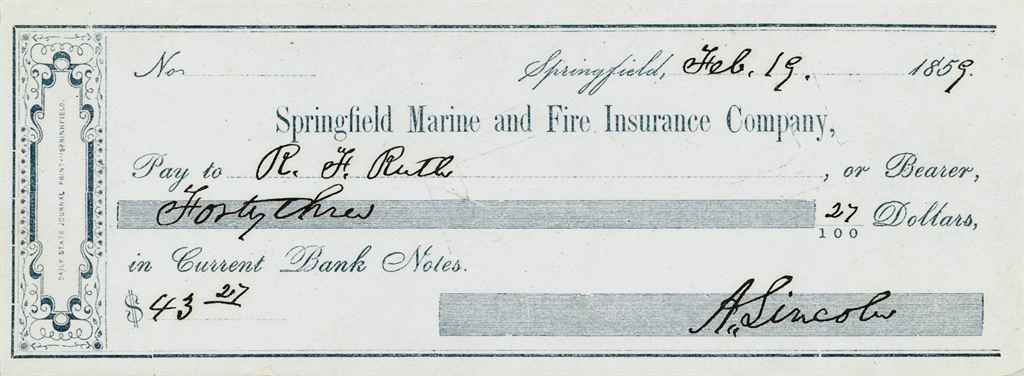 No. Springfield, Feb. 19. 1859.
Springfield Marine and Fire Insurance Company,
Pay to R. F. Ruth , or Bearer,
Forty three 27/100 Dollars,
in Current Bank Notes.
$43 27 A. Lincoln
DAILY STATE JOURNAL PRINT—SPRINGFIELD.